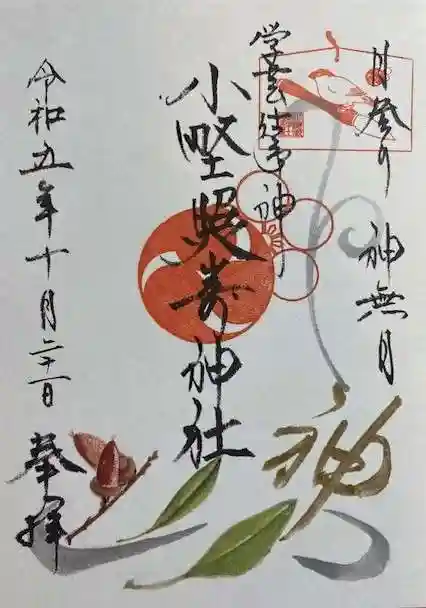 月参り 神無月
学芸の神
小野照崎神社
神
令和五年十月二十一日 奉拝